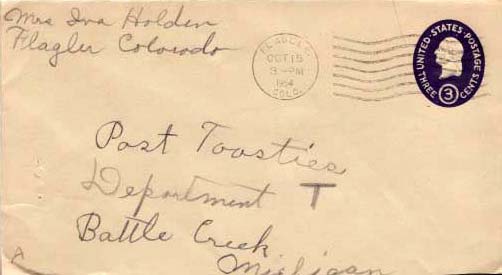 Mrs Iva Holden
Flagler Colorado
FLAGLER
OCT 15
3 - PM
1954
COLO.
UNITED·STATES·POSTAGE
THREE 3 CENTS
Post Toasties
Department T
Battle Creek
Michigan
A